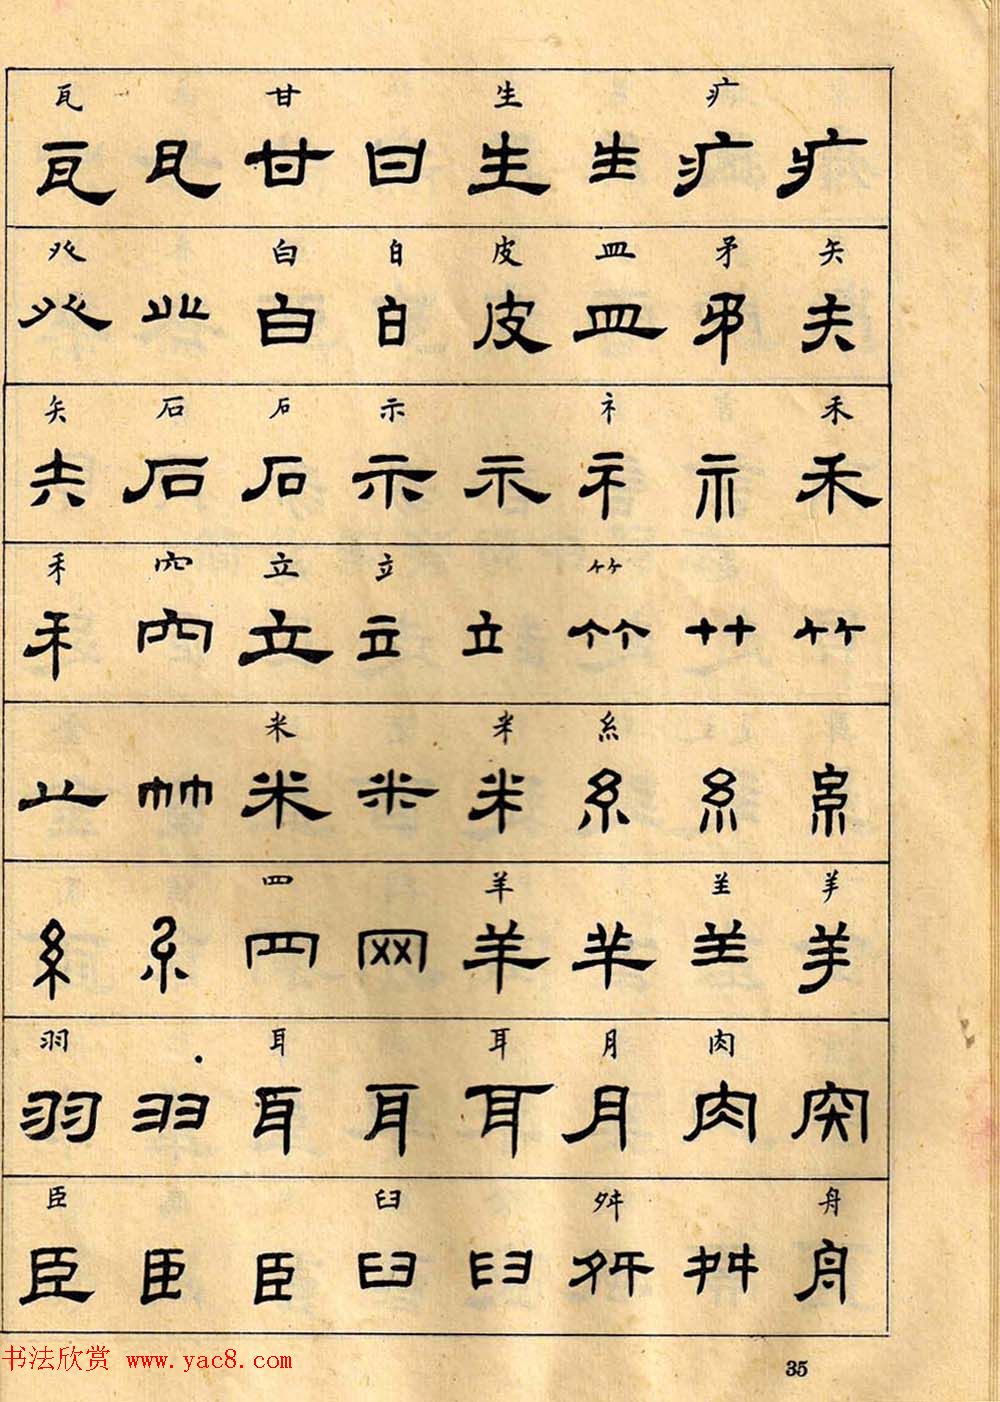 瓦 甘 生 疒
瓦 瓦 甘 甘 生 生 疒 疒
癶 白 白 皮 皿 矛 矢
癶 癶 白 白 皮 皿 矛 矢
矢 石 石 示 礻 禾
矢 石 石 示 示 礻 示 禾
禾 穴 立 立 竹
禾 穴 立 立 立 竹 竹 竹
米 米 糸
竹 竹 米 米 米 糸 糸 糸
四 羊 羊 羊
糸 糸 四 网 羊 羊 羊 羊
羽 耳 耳 月 肉
羽 羽 耳 耳 耳 月 肉 肉
臣 臼 舛 舟
臣 臣 臣 臼 臼 舛 舛 舟
书法欣赏 www.yac8.com
35